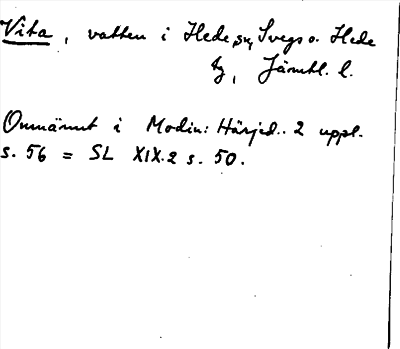 Vita, vatten i Hede sn, Svegs o. Hede
tg, Jämtl. l.
Omnämnt i Modin: Härjed.. 2 uppl.
s. 56 = SL XIX.2 s. 50.